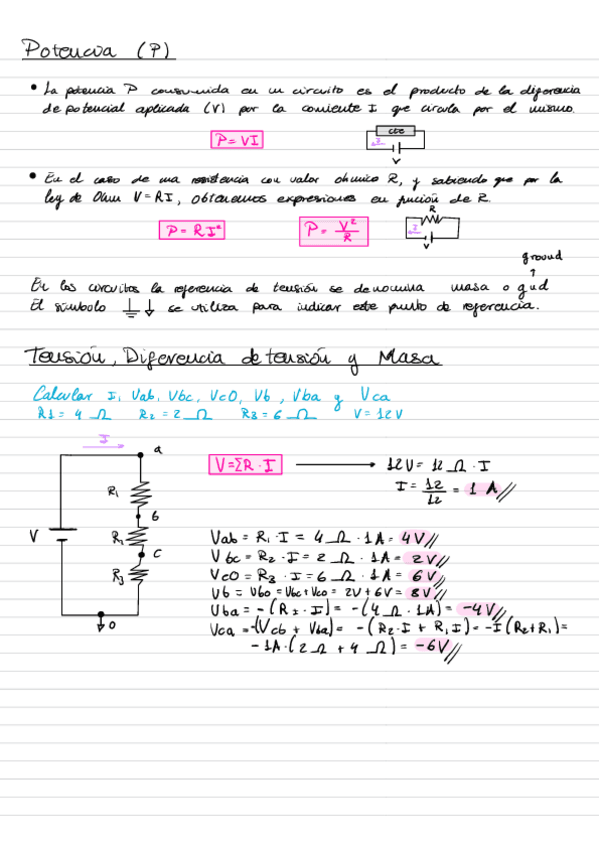 Potencia (P)
• La potencia P consumida en un circuito es el producto de la diferencia
de potencial aplicada (V) por la corriente I que circula por el mismo.
P=VI
cte
I
V
• En el caso de una resistencia con valor ohmico R, y sabiendo que por la
ley de Ohm V=RI, obtenemos expresiones en función de R.
P=RI²
P=V²/R
R
I
V
ground
↑
En los circuitos la referencia de tensión se denomina masa o gnd
El símbolo se utiliza para indicar este punto de referencia.
Tensión, Diferencia de tensión y Masa
Calcular I, Vab, Vbc, Vc0, Vb, Vba y Vca
R1= 4 Ω R2=2 Ω R3=6 Ω V=12V
I
a
R1
b
V
R1
c
R3
0
V=ΣR·I → 12V= 12 Ω · I
I= 12/12 = 1 A//
Vab = R1·I = 4 Ω · 1A= 4V//
Vbc = R2·I= 2 Ω · 1A= 2V//
Vc0 = R3·I=6 Ω · 1A= 6V//
Vb = Vb0=Vbc+Vc0= 2V+6V= 8V//
Vba=-(R1·I)= -(4 Ω·1A)= -4V//
Vca =-(Vcb + Vba)= -(R2·I + R1I)=-I(R2+R1)=
-1A·(2 Ω + 4 Ω)= -6V//